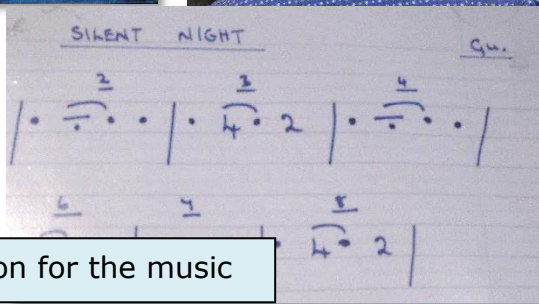 SILENT NIGHT
Gu.
2 3 4
4 2
6 7 8
4 2
on for the music